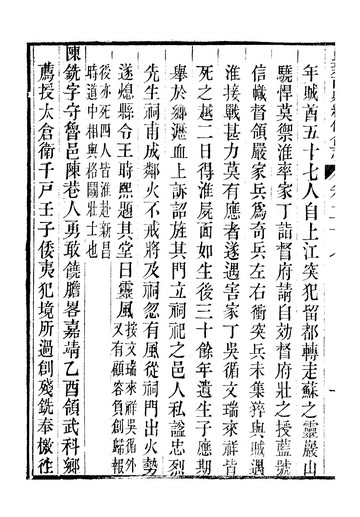 年賊酋五十七人自上江突犯留都轉走蘇之靈巖山
驍悍莫禦淮率家丁詣督府請自効督府壯之授藍號
信幟督領嚴家兵爲奇兵左右衝突兵未集猝與賊遇
淮接戰甚力莫有應者遂遇害家丁吳循文瑞來祥皆
死之越二日得淮屍面如生後三十餘年遺生子應期
舉於鄉瀝血上訴詔旌其門立祠祀之邑人私諡忠烈
先生祠甫成鄰火不戒將及祠忽有風從祠門出火勢
遂熄縣令王時熙題其堂曰靈風按文瑞來祥吳循外又有顧容負創歸報
後亦死四人皆淮赴新昌時道中相與格鬭壯士也
陳銑字守魯邑陳巷人勇敢饒膽畧嘉靖乙酉領武科鄉
薦授太倉衛千戸壬子倭夷犯境所過創殘銑奉檄往